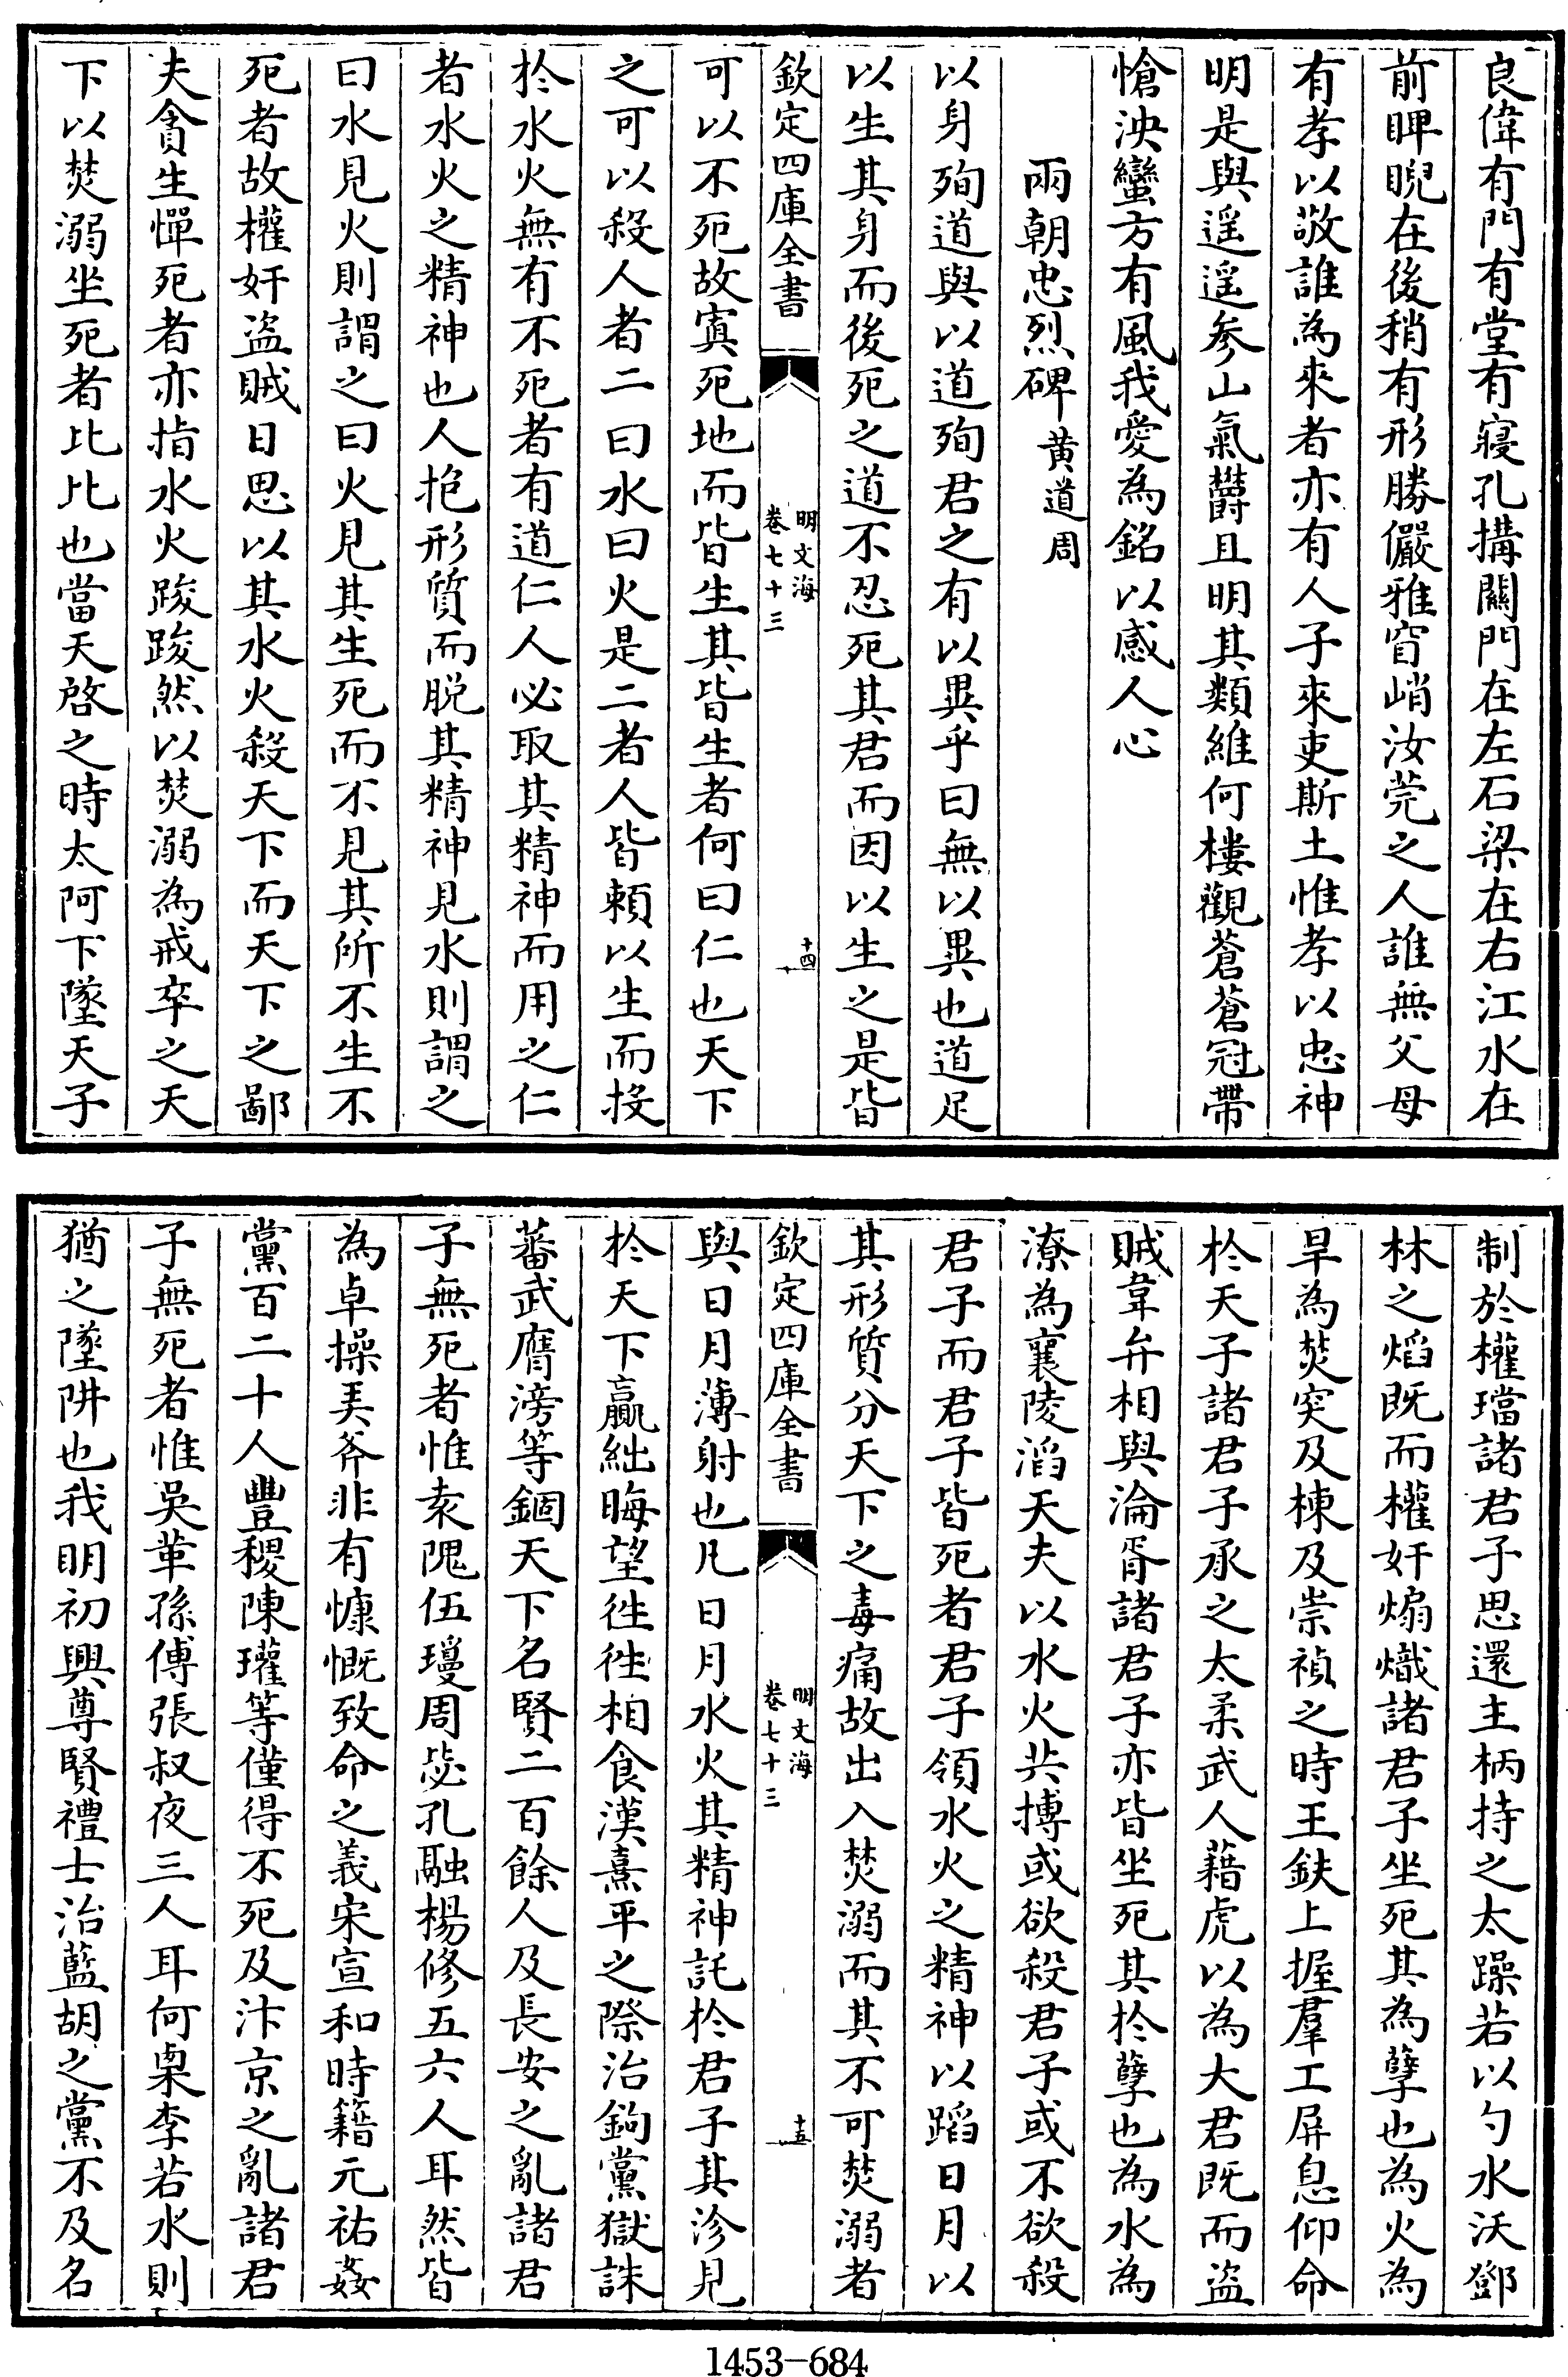 良偉有門有堂有寢孔搆闗門在左石梁在右江水在
前睥睨在後稍有形勝儼雅窅峭汝莞之人誰無父母
有孝以敬誰為來者亦有人子來吏斯土惟孝以忠神
明是與遥遥参山氣欝且明其類維何樓觀蒼蒼冠帶
愴泱蠻方有風我愛為銘以感人心
兩朝忠烈碑 黄道周
以身殉道與以道殉君之有以異乎曰無以異也道足
以生其身而後死之道不忍死其君而因以生之是皆
欽定四庫全書
明文海
卷七十三
十四
可以不死故寘死地而皆生其皆生者何曰仁也天下
之可以殺人者二曰水曰火是二者人皆頼以生而投
於水火無有不死者有道仁人必取其精神而用之仁
者水火之精神也人抱形質而脱其精神見水則謂之
曰水見火則謂之曰火見其生死而不見其所不生不
死者故權奸盗賊日思以其水火殺天下而天下之鄙
夫貪生憚死者亦指水火踆踆然以焚溺為戒卒之天
下以焚溺坐死者比比也當天啓之時太阿下墜天子
制於權璫諸君子思還主柄持之太躁若以勺水沃鄧
林之焰既而權奸煽熾諸君子坐死其為孽也為火為
旱為焚突及棟及崇禎之時王鈇上握羣工屏息仰命
於天子諸君子承之太柔武人藉虎以為大君既而盗
賊韋弁相與淪胥諸君子亦皆坐死其於孽也為水為
潦為襄陵滔天夫以水火共搏或欲殺君子或不欲殺
君子而君子皆死者君子領水火之精神以蹈日月以
其形質分天下之毒痛故出入焚溺而其不可焚溺者
欽定四庫全書
明文海
卷七十三
十五
與日月薄射也凡日月水火其精神託於君子其沴見
於天下贏絀晦望往往相食漢熹平之際治鉤黨獄誅
蕃武膺滂等錮天下名賢二百餘人及長安之亂諸君
子無死者惟袁隗伍瓊周毖孔融楊修五六人耳然皆
為卓操美斧非有慷慨致命之義宋宣和時籍元祐姦
黨百二十人豐稷陳瓘等僅得不死及汴京之亂諸君
子無死者惟吳革孫傅張叔夜三人耳何㮚李若水則
猶之墜阱也我明初興尊賢禮士治藍胡之黨不及名
1453-684